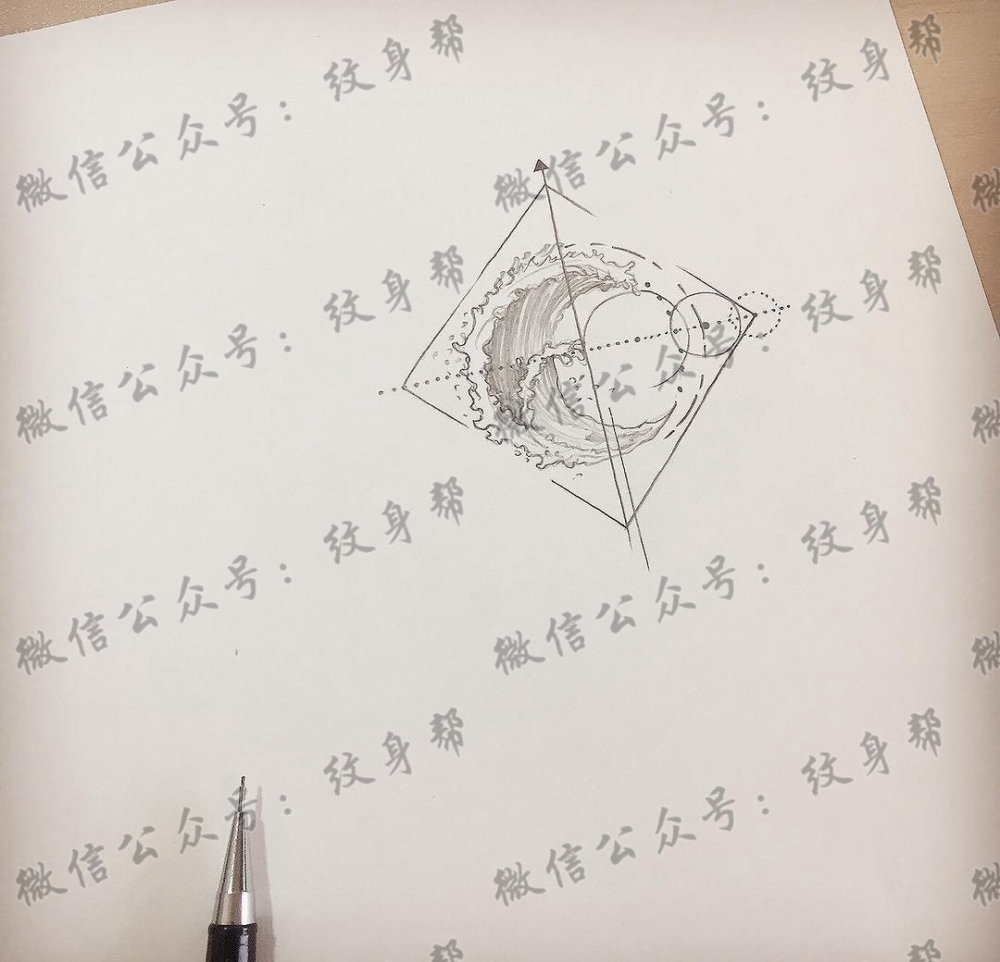 微信公众号：纹身帮
微信公众号：纹身帮
微信公众号：纹身帮
微信公众号：纹身帮
微信公众号：纹身帮
微信公众号：纹身帮
微信公众号：纹身帮
微信公众号：纹身帮